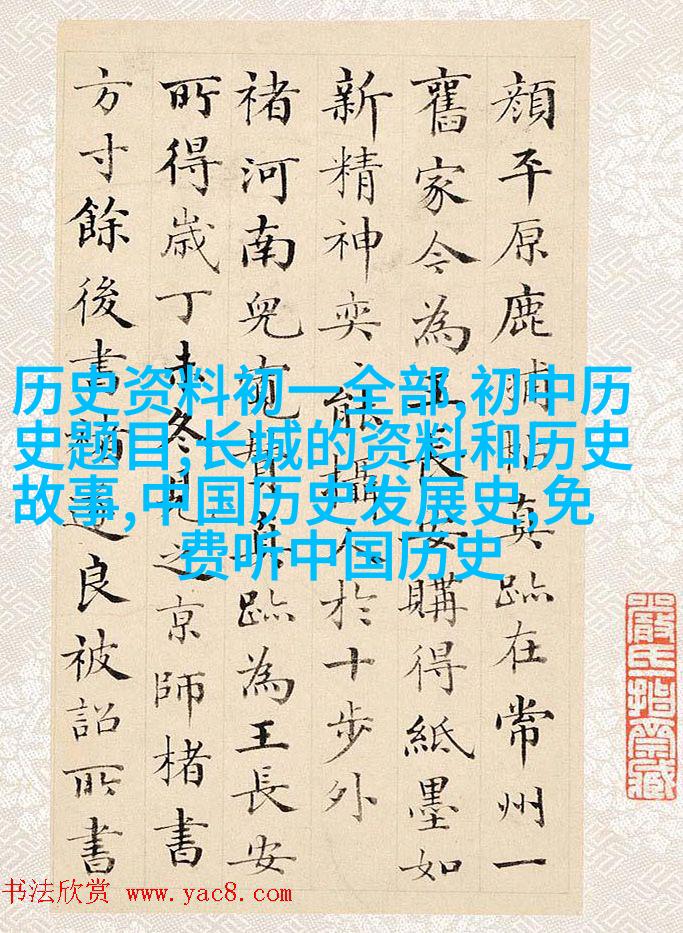 顔平原鹿脯帖真跡在常州一
舊家今為王長安購得紙墨如
新精神奕〻能攝人於十步外
褚河南兒寬贊真跡為王長安
所得歲丁未冬見之京師楮書
方寸餘後書遂良被詔所書
历史资料初一全部,初中历
史题目,长城的资料和历史
故事,中国历史发展史,免
费听中国历史
书法欣赏 www.yac8.com